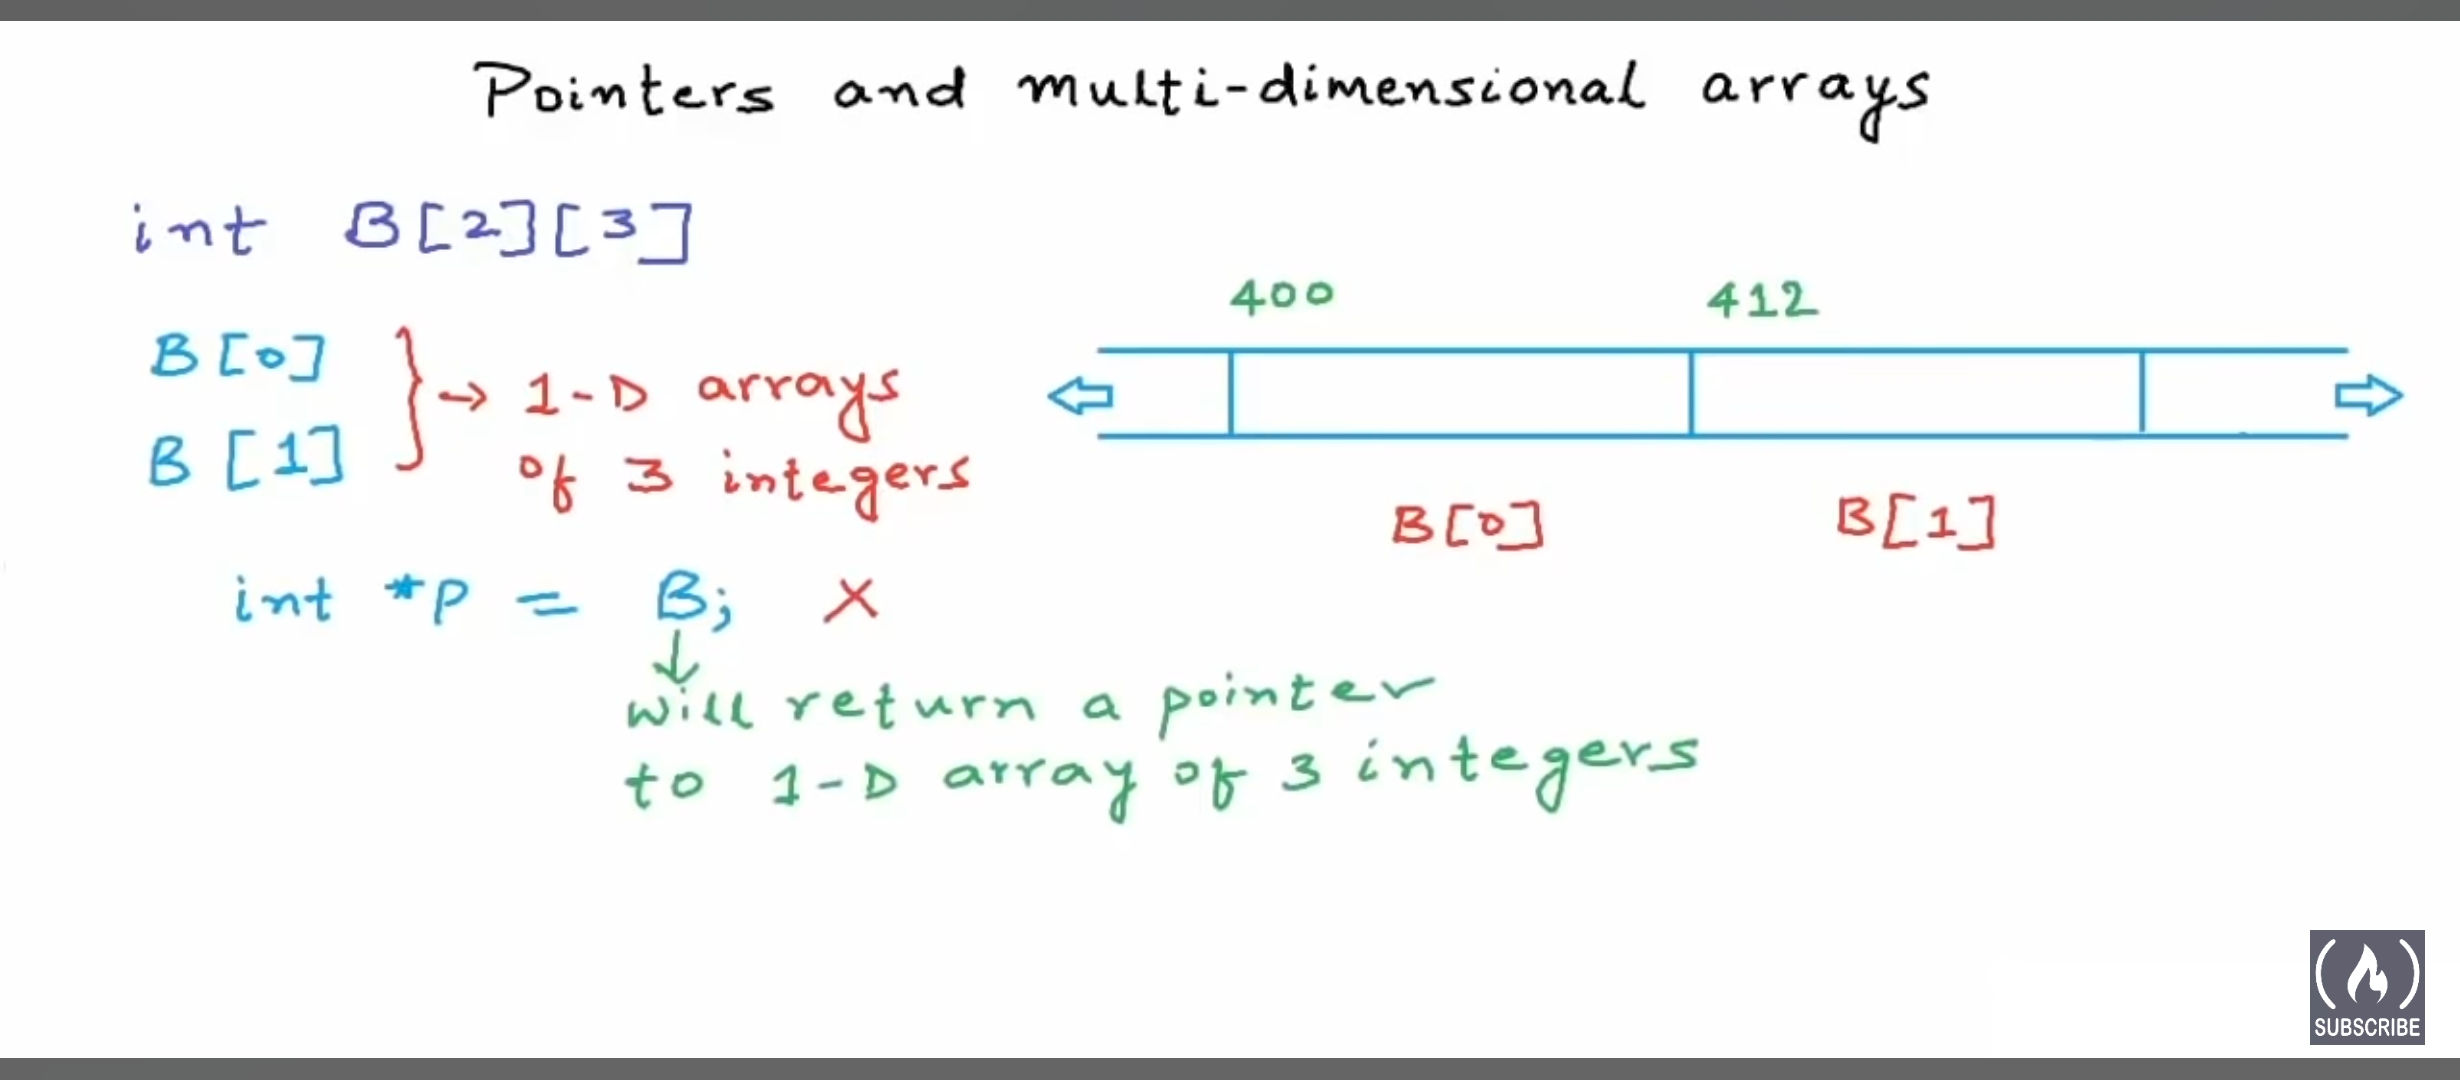 Pointers and multi-dimensional arrays
int B[2][3]
400 412
B[0]
B[1]
} → 1-D arrays
of 3 integers
B[0] B[1]
int *p = B; X
↓
will return a pointer
to 1-D array of 3 integers
SUBSCRIBE